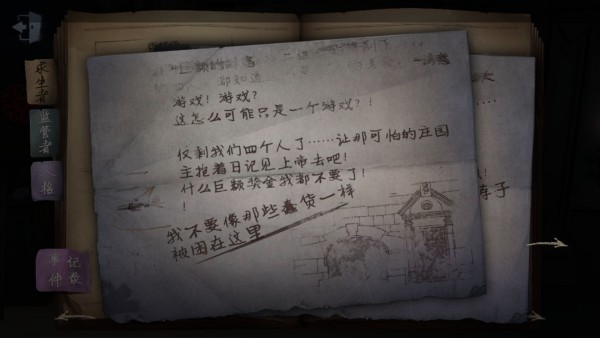 求生者
监管者
人格
事件
记录
都知道
游戏！游戏？
这怎么可能只是一个游戏？！
仅剩我们四个人了……让那可怕的庄园
主抱着日记见上帝去吧！
什么巨额奖金我都不要了！
！
我不要像那些蠢货一样
被困在这里